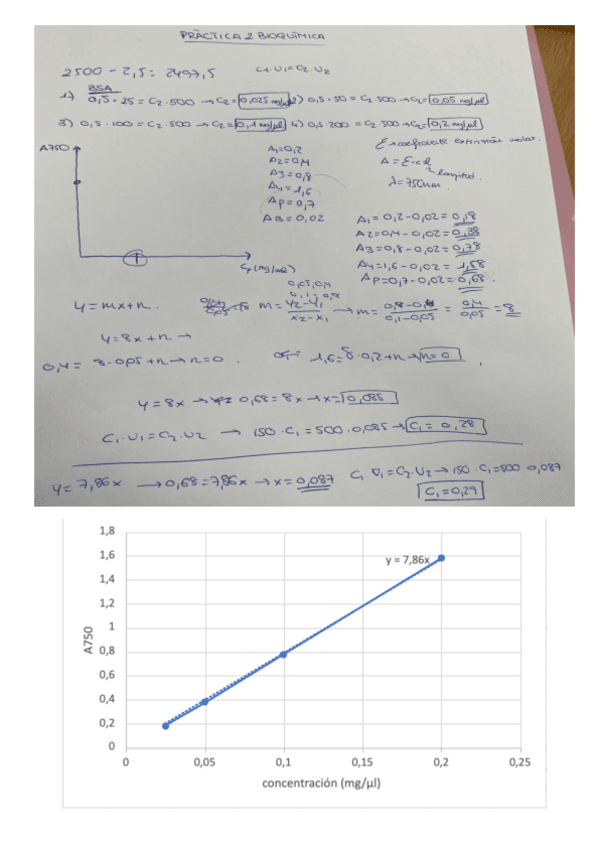 PRÀCTICA 2 BIOQUÍMICA
2500 - 2,5 = 2497,5 C1·V1=C2·V2
BSA
1) 0,5 · 25 = C2 · 500 → C2= 0,025 mg/µl 2) 0,5 · 50 = C2 · 500 → C2= 0,05 mg/µl
3) 0,5 · 100 = C2 · 500 → C2= 0,1 mg/µl 4) 0,5 · 200 = C2 · 500 → C2= 0,2 mg/µl
A750
A1=0,2
A2=0,4
A3=0,8
A4=1,6
Ap=0,7
AB=0,02
A = E·c·l
longitud.
λ=750nm
A1= 0,2-0,02= 0,18
A2=0,4-0,02= 0,38
A3=0,8-0,02= 0,78
A4=1,6-0,02= 1,58
Ap=0,7-0,02= 0,68
Cp (mg/ml)
0,05,0,4
0,1, 0,8
y=mx+n. m= y2-y1 / x2-x1 → m= 0,8-0,4 / 0,1-0,05 = 0,4 / 0,05 = 8
y=8x+n →
0,4= 8·0,05+n→n=0. 1,6=8·0,2+n→n=0
y=8x → 0,68=8x→x= 0,085
C1·V1=C2·V2 → 150·C1=500·0,085→ C1= 0,28
y=7,86x → 0,68=7,86x →x= 0,087 C1·V1=C2·V2→150·C1=500 0,087
C1=0,29
1,8
1,6
1,4
1,2
1
0,8
0,6
0,4
0,2
0
A750
y = 7,86x
0 0,05 0,1 0,15 0,2 0,25
concentración (mg/µl)